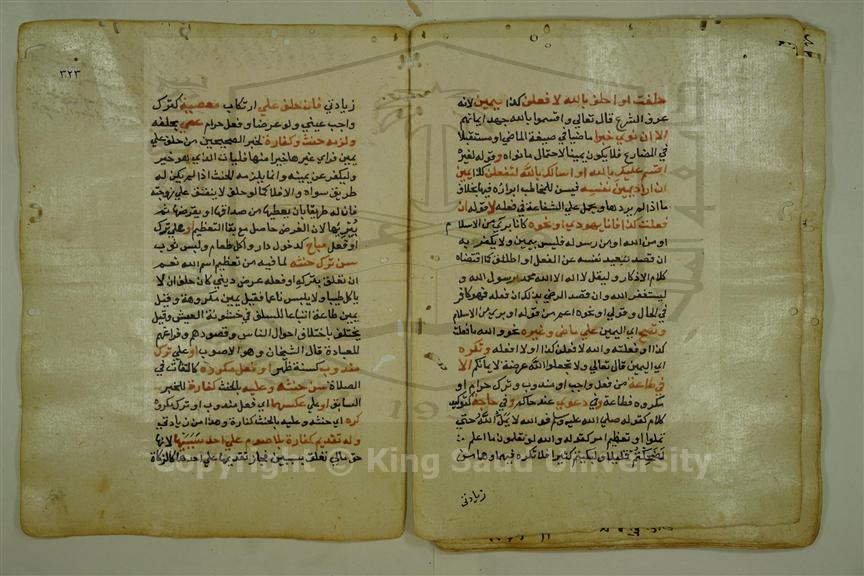 حلفت او احلف بالله لا فعلن كذا يمين لانه
عرف الشرع قال تعالى واقسموا بالله جهد ايمانهم
الا ان نوى خبرا ماضيا في صيغة الماضي او مستقبلا
في المضارع فلا يكون يمينا لاحتمال ما نواه وقوله لغيره
اقسم عليك بالله او اسالك بالله لتفعلن كذا يمين
ان اراد يمين نفسه فيسن للمخاطب ابراره فيها بخلاف
ما اذا لم يردها ويحمل على الشفاعة في فعله لا قوله ان
فعلت كذا فانا يهودي او نحوه كانا بري من الاسلام
او من الله او من رسوله فليس بيمين ولا يكفر به
ان قصد تبعيد نفسه عن الفعل او اطلق كما اقتضاه
كلام الاذكار وليقل لا اله الا الله محمد رسول الله و
ليستغفر الله وان قصد الرضى بذلك ان فعله فهو كافر
في الحال وقولي او نحوه اعم من قوله او بري من الاسلام
وتصح اي اليمين على ماض وغيره نحو والله ما فعلت
كذا او فعلته والله لا فعلن كذا او لا افعله وتكره
اي اليمين قال تعالى ولا تجعلوا الله عرضة لايمانكم الا
في طاعة من فعل واجب او مندوب وترك حرام او
مكروه فطاعة وفي دعوى عند حاكم وفي حاجة كتوكيد
كلام كقوله صلى الله عليه وسلم فوالله لا يمل الله حتى
تملوا او تعظيم امر كقوله والله لو تعلمون ما اعلم
لضحكتم قليلا ولبكيتم كثيرا فلا تكره فيهما وهما من
زيادتي
٣٢٣
زيادتي فان حلف على ارتكاب معصية كترك
واجب عيني ولو عرضا وفعل حرام عصى بحلفه
ولزمه حنث وكفارة لخبر الصحيحين من حلف على
يمين فراى غيرها خيرا منها فليات الذي هو خير
وليكفر عن يمينه وانما يلزمه الحنث اذا لم يكن له
طريق سواه والا فلا كما لو حلف لا ينفق على زوجته
فان له طريقا بان يعطيها من صداقها او يقرضها ثم
يبريها لان الغرض حاصل مع بقا التعظيم او على ترك
او فعل مباح كدخول دار واكل طعام ولبس ثوب
سن ترك حنثه لما فيه من تعظيم اسم الله نعم
ان تعلق بتركه او فعله غرض ديني كان حلف ان لا
ياكل طيبا ولا يلبس ناعما فقيل يمين مكروهة وقيل
يمين طاعة اتباعا للسلف في خشونة العيش وقيل
يختلف باختلاف احوال الناس وقصودهم وفراغهم
للعبادة قال الشيخان وهو الاصوب او على ترك
مندوب كسنة ظهر او فعل مكروه كالتفات في
الصلاة سن حنثه وعليه بالحنث كفارة للخبر
السابق او على عكسهما اي فعل مندوب او ترك مكروه
كره اي حنثه وعليه بالحنث كفارة وهذا من زيادتي
وله تقديم كفارة بلا صوم على احد سببيها لانها
حق مالي تعلق بسببين فجاز تقديمها على احدهما كالزكاة
Copyright © King Saud University